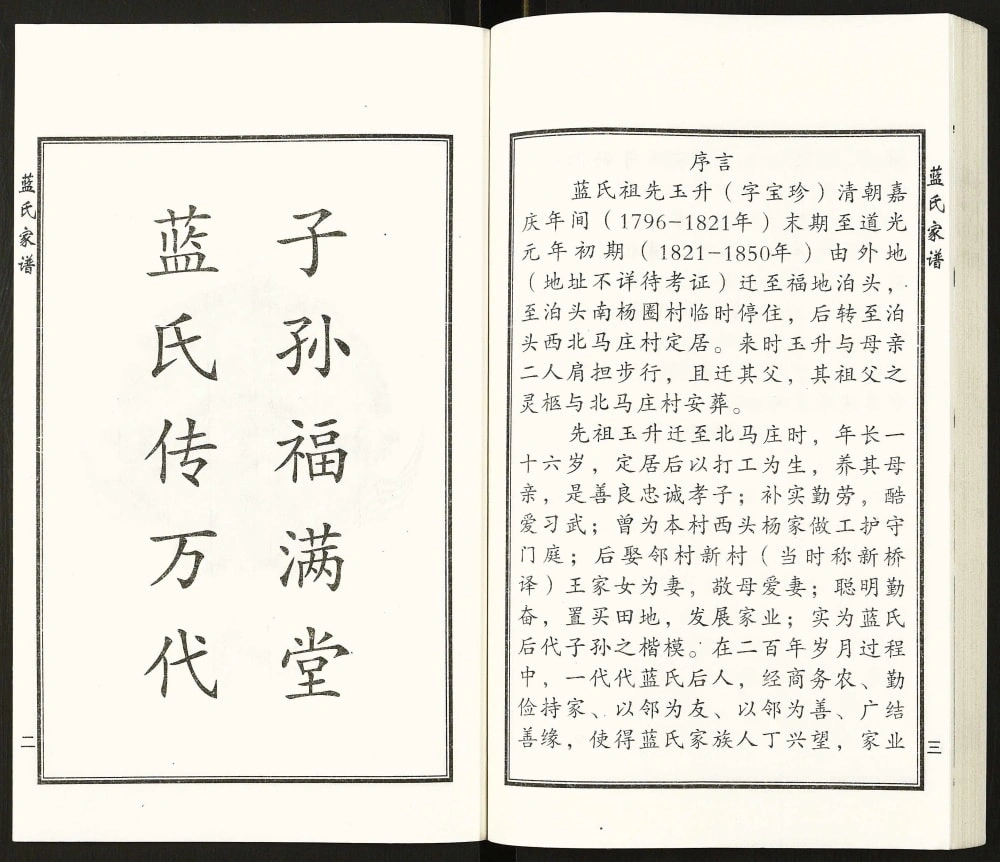 蓝氏家谱
子孙福满堂
蓝氏传万代
二
序言
蓝氏祖先玉升（字宝珍）清朝嘉
庆年间（1796-1821年）末期至道光
元年初期（1821-1850年）由外地
（地址不详待考证）迁至福地泊头，
至泊头南杨圈村临时停住，后转至泊
头西北马庄村定居。来时玉升与母亲
二人肩担步行，且迁其父，其祖父之
灵柩与北马庄村安葬。
先祖玉升迁至北马庄时，年长一
十六岁，定居后以打工为生，养其母
亲，是善良忠诚孝子；补实勤劳，酷
爱习武；曾为本村西头杨家做工护守
门庭；后娶邻村新村（当时称新桥
译）王家女为妻，敬母爱妻；聪明勤
奋，置买田地，发展家业；实为蓝氏
后代子孙之楷模。在二百年岁月过程
中，一代代蓝氏后人，经商务农、勤
俭持家、以邻为友、以邻为善、广结
善缘，使得蓝氏家族人丁兴望，家业
蓝氏家谱
三